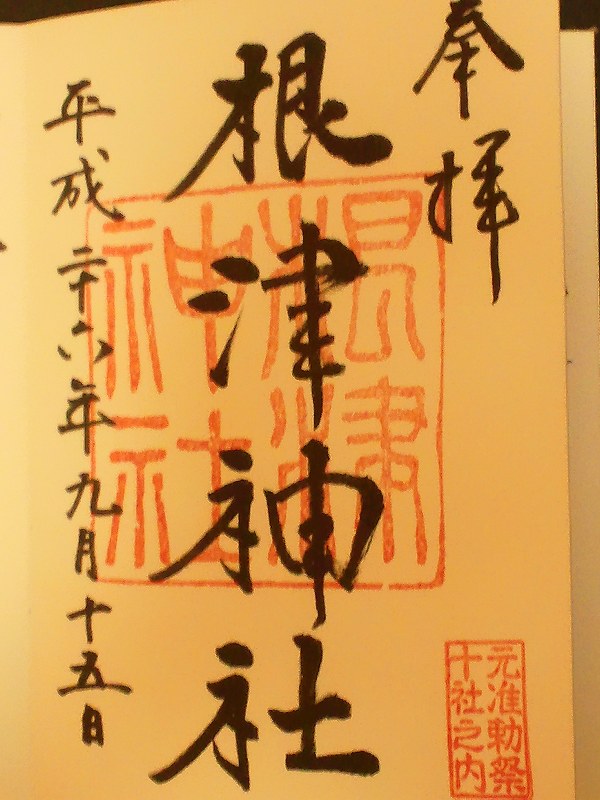 奉拝
根津神社
平成二十六年九月十五日
根津
神社
元准勅祭
十社之内